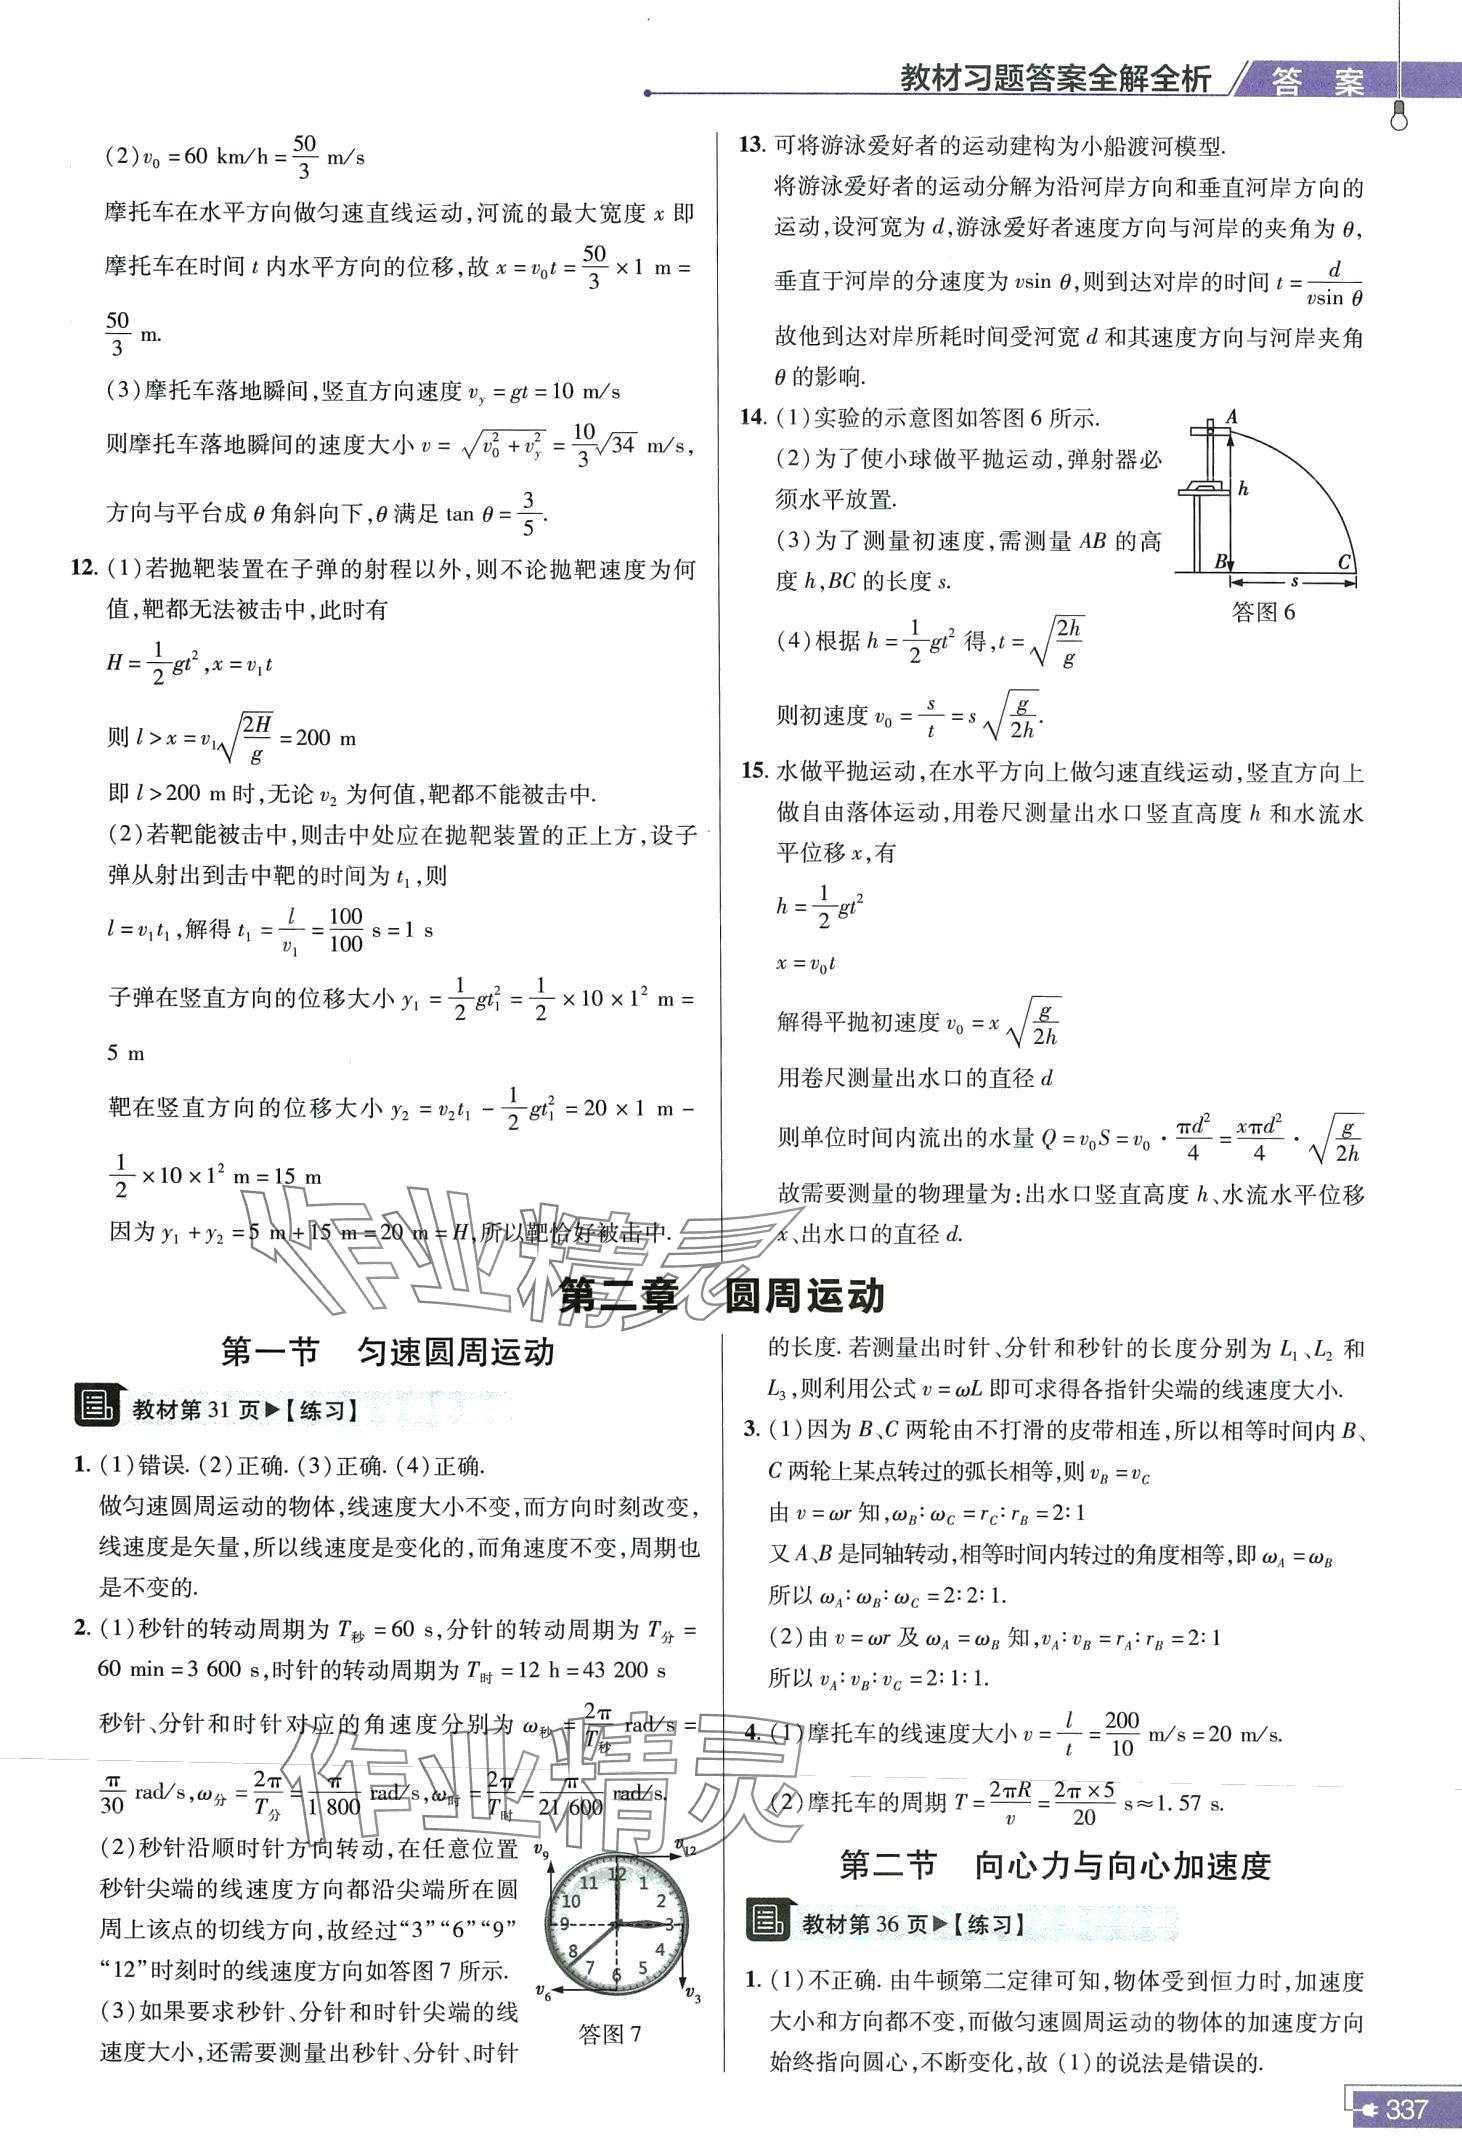 教材习题答案全解全析 答 案
(2)v₀=60 km/h=50/3 m/s
摩托车在水平方向做匀速直线运动,河流的最大宽度 x 即
摩托车在时间 t 内水平方向的位移,故 x=v₀t=50/3×1 m=
50/3 m.
(3)摩托车落地瞬间,竖直方向速度 v_y=gt=10 m/s
则摩托车落地瞬间的速度大小 v=√(v₀²+v_y²)=10/3√34 m/s,
方向与平台成 θ 角斜向下,θ 满足 tan θ=3/5.
12. (1)若抛靶装置在子弹的射程以外,则不论抛靶速度为何
值,靶都无法被击中,此时有
H=1/2gt²,x=v₁t
则 l>x=v₁√(2H/g)=200 m
即 l>200 m 时,无论 v₂ 为何值,靶都不能被击中.
(2)若靶能被击中,则击中处应在抛靶装置的正上方,设子
弹从射出到击中靶的时间为 t₁,则
l=v₁t₁,解得 t₁=l/v₁=100/100 s=1 s
子弹在竖直方向的位移大小 y₁=1/2gt₁²=1/2×10×1² m=
5 m
靶在竖直方向的位移大小 y₂=v₂t₁-1/2gt₁²=20×1 m-
1/2×10×1² m=15 m
因为 y₁+y₂=5 m+15 m=20 m=H,所以靶恰好被击中.
13. 可将游泳爱好者的运动建构为小船渡河模型.
将游泳爱好者的运动分解为沿河岸方向和垂直河岸方向的
运动,设河宽为 d,游泳爱好者速度方向与河岸的夹角为 θ,
垂直于河岸的分速度为 vsin θ,则到达对岸的时间 t=d/(vsin θ)
故他到达对岸所耗时间受河宽 d 和其速度方向与河岸夹角
θ 的影响.
14. (1)实验的示意图如答图 6 所示.
(2)为了使小球做平抛运动,弹射器必
须水平放置.
(3)为了测量初速度,需测量 AB 的高
度 h,BC 的长度 s.
(4)根据 h=1/2gt² 得,t=√(2h/g)
则初速度 v₀=s/t=s√(g/2h).
A
h
B
C
s
答图 6
15. 水做平抛运动,在水平方向上做匀速直线运动,竖直方向上
做自由落体运动,用卷尺测量出水口竖直高度 h 和水流水
平位移 x,有
h=1/2gt²
x=v₀t
解得平抛初速度 v₀=x√(g/2h)
用卷尺测量出水口的直径 d
则单位时间内流出的水量 Q=v₀S=v₀·πd²/4=xπd²/4·√(g/2h)
故需要测量的物理量为:出水口竖直高度 h、水流水平位移
x、出水口的直径 d.
作业精灵
第二章 圆周运动
第一节 匀速圆周运动
教材第 31 页▶【练习】
1. (1)错误. (2)正确. (3)正确. (4)正确.
做匀速圆周运动的物体,线速度大小不变,而方向时刻改变,
线速度是矢量,所以线速度是变化的,而角速度不变,周期也
是不变的.
2. (1)秒针的转动周期为 T秒=60 s,分针的转动周期为 T分=
60 min=3 600 s,时针的转动周期为 T时=12 h=43 200 s
秒针、分针和时针对应的角速度分别为 ω秒=2π/T秒 rad/s=
π/30 rad/s,ω分=2π/T分=π/1 800 rad/s,ω时=2π/T时=π/21 600 rad/s.
作业精灵
(2)秒针沿顺时针方向转动,在任意位置
秒针尖端的线速度方向都沿尖端所在圆
周上该点的切线方向,故经过“3”“6”“9”
“12”时刻时的线速度方向如答图 7 所示.
(3)如果要求秒针、分针和时针尖端的线
速度大小,还需要测量出秒针、分针、时针
v₉
v₁₂
12
11 1
10 2
9 3
8 4
7 5
6
v₆
v₃
答图 7
的长度. 若测量出时针、分针和秒针的长度分别为 L₁、L₂ 和
L₃,则利用公式 v=ωL 即可求得各指针尖端的线速度大小.
3. (1)因为 B、C 两轮由不打滑的皮带相连,所以相等时间内 B、
C 两轮上某点转过的弧长相等,则 v_B=v_C
由 v=ωr 知,ω_B∶ω_C=r_C∶r_B=2∶1
又 A、B 是同轴转动,相等时间内转过的角度相等,即 ω_A=ω_B
所以 ω_A∶ω_B∶ω_C=2∶2∶1.
(2)由 v=ωr 及 ω_A=ω_B 知,v_A∶v_B=r_A∶r_B=2∶1
所以 v_A∶v_B∶v_C=2∶1∶1.
4. (1)摩托车的线速度大小 v=l/t=200/10 m/s=20 m/s.
(2)摩托车的周期 T=2πR/v=2π×5/20 s≈1.57 s.
第二节 向心力与向心加速度
教材第 36 页▶【练习】
1. (1)不正确. 由牛顿第二定律可知,物体受到恒力时,加速度
大小和方向都不变,而做匀速圆周运动的物体的加速度方向
始终指向圆心,不断变化,故 (1)的说法是错误的.
337